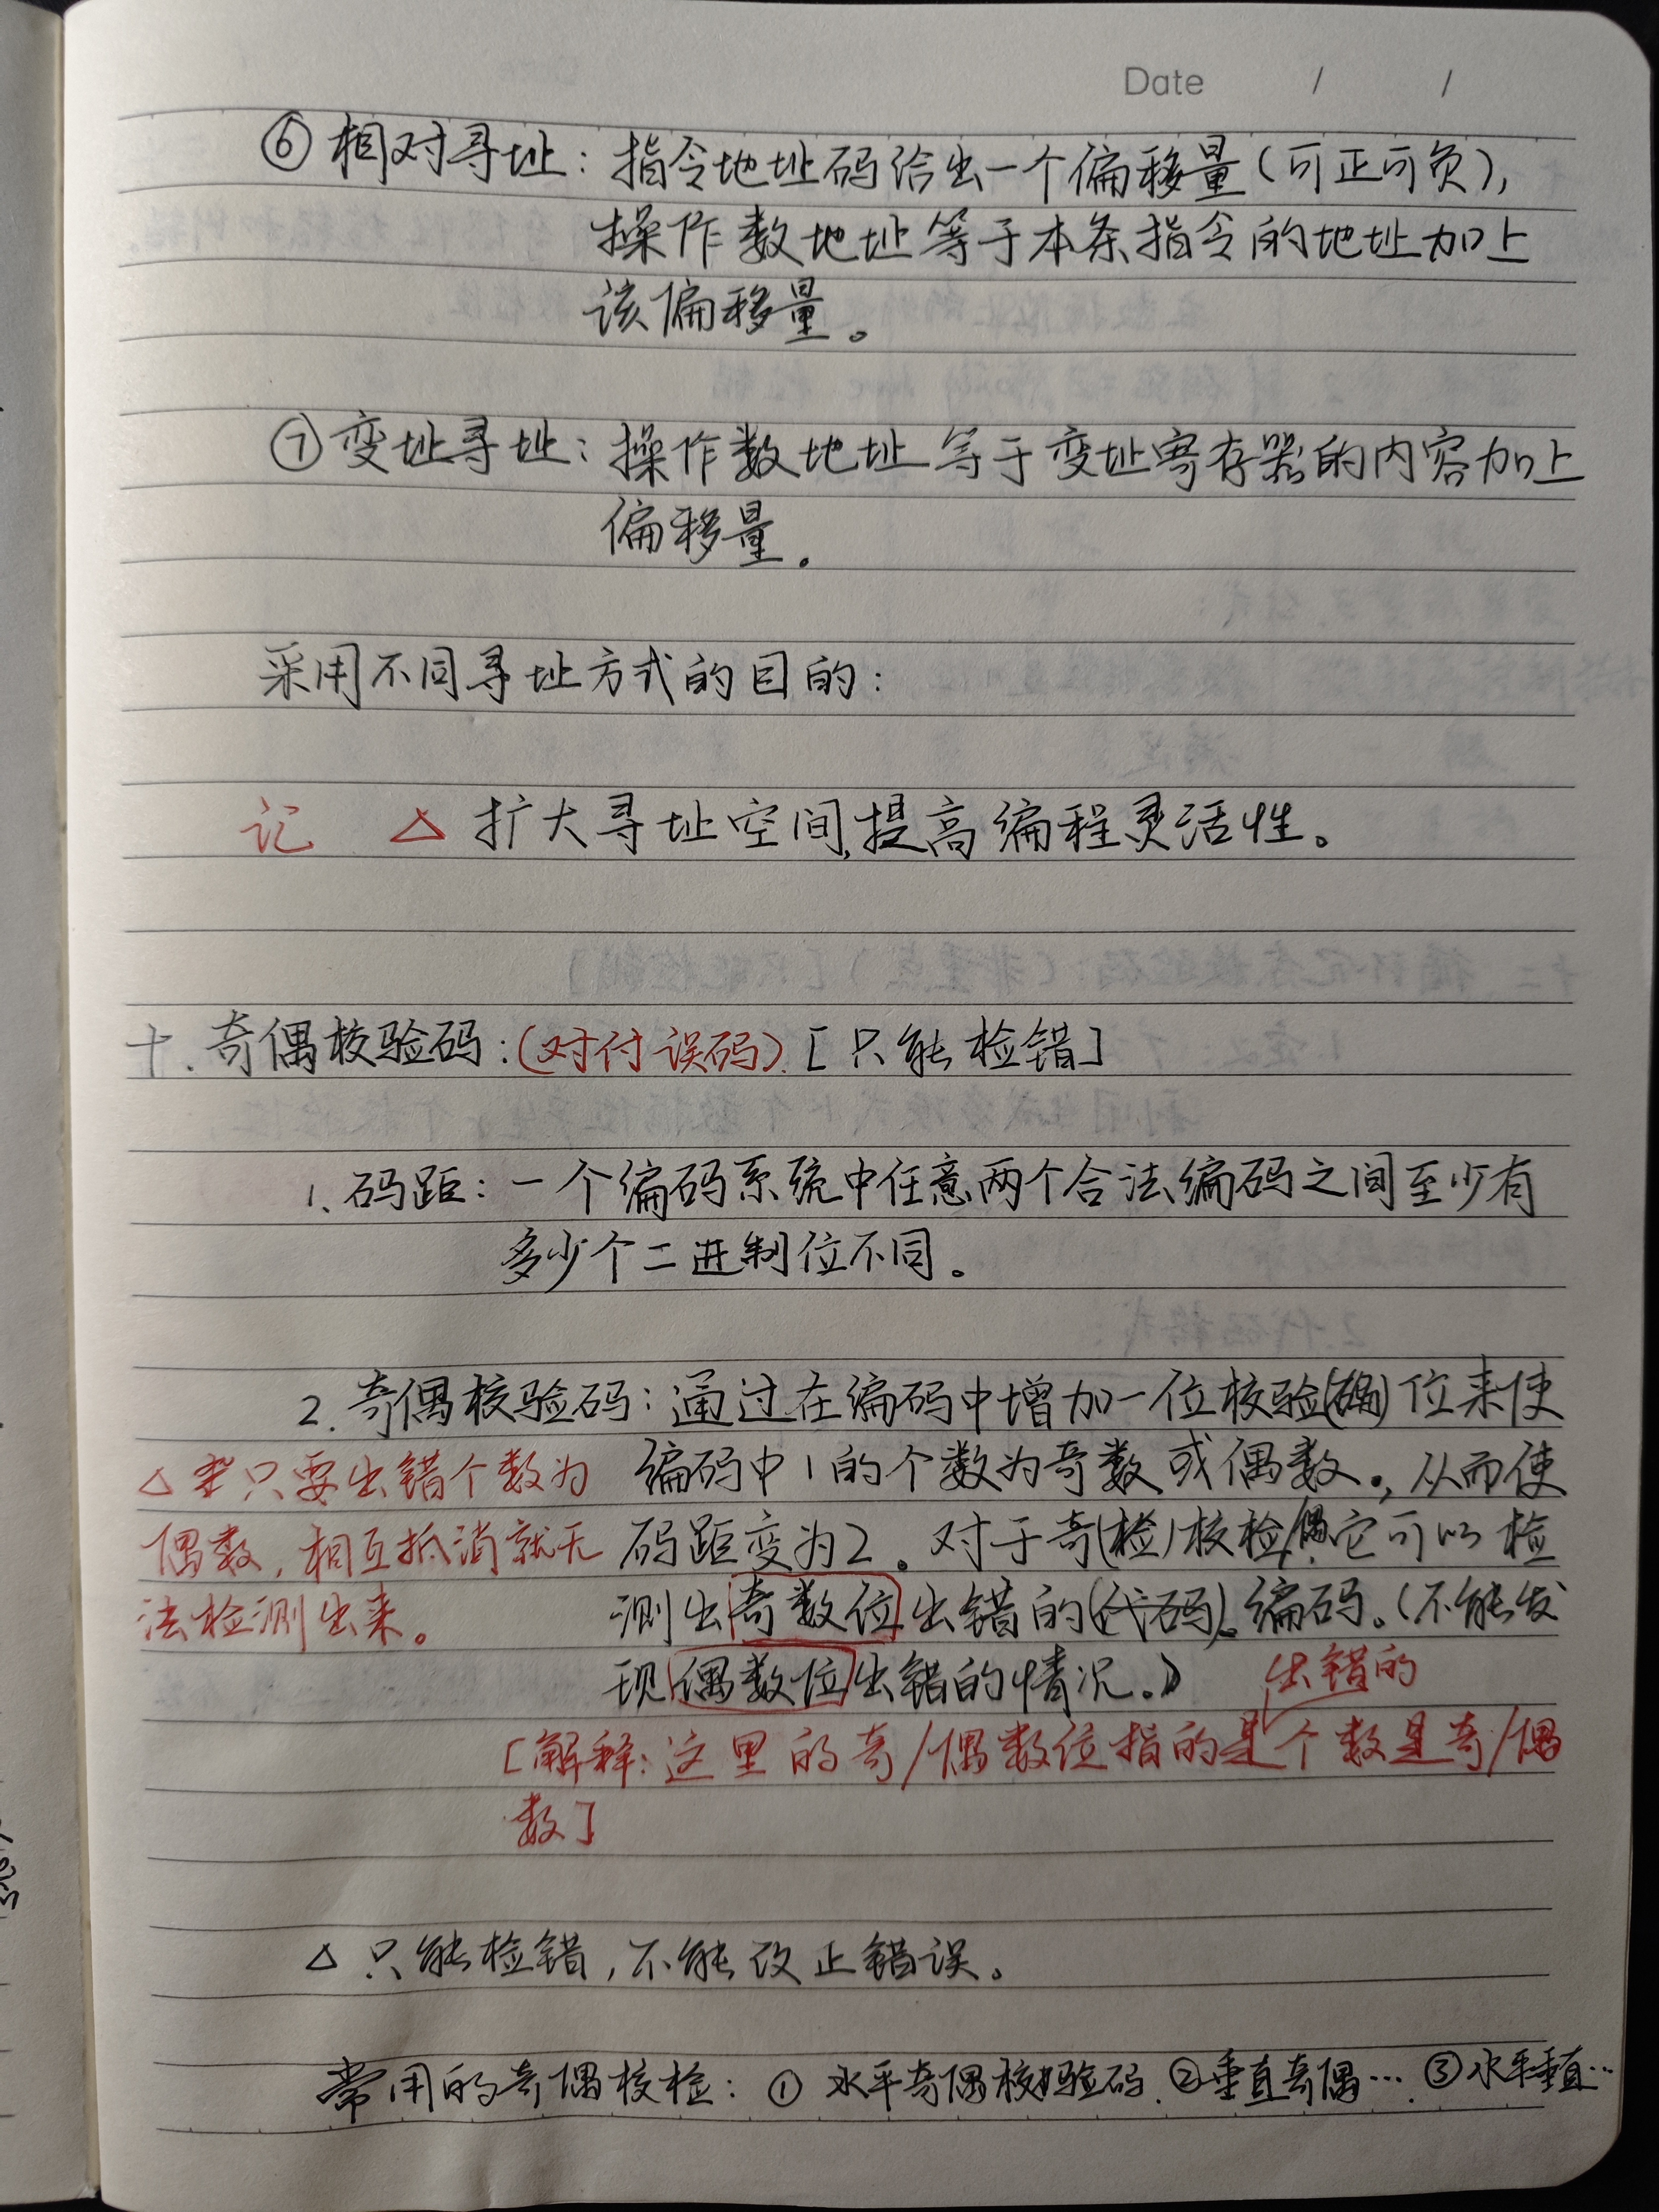 Date / /
⑥相对寻址：指令地址码给出一个偏移量（可正可负），
操作数地址等于本条指令的地址加上
该偏移量。
⑦变址寻址：操作数地址等于变址寄存器的内容加上
偏移量。
采用不同寻址方式的目的：
记 △ 扩大寻址空间，提高编程灵活性。
十．奇偶校验码：（对付误码）．[只能检错]
1．码距：一个编码系统中任意两个合法编码之间至少有
多少个二进制位不同。
2．奇偶校验码：通过在编码中增加一位校验（）位来使
编码中1的个数为奇数或偶数。，从而使
码距变为2。对于奇(检)校检，它可以检
测出奇数位出错的(代码)。编码。（不能发
现偶数位出错的情况。）
△ 只要出错个数为
偶数，相互抵消就无
法检测出来。
出错的
[解释：这里的奇/偶数位指的是个数是奇/偶
数]
△ 只能检错，不能改正错误。
常用的奇偶校检：① 水平奇偶校验码．②垂直奇偶…．③水平垂直…